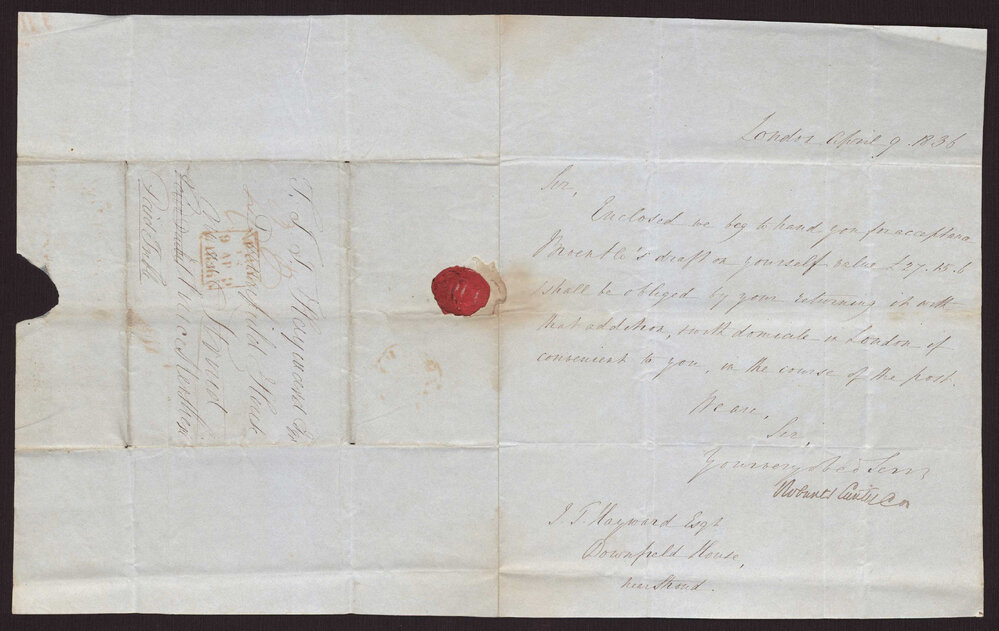 London April 9 1836
Sir,
Enclosed we beg to hand you for acceptance
draft on yourself value £27.15.6
shall be obliged by your returning it with
that addition, & with domicile in London if
convenient to you, in the course of the post.
We are,
Sir,
Your very Obed Servts
Roberts Curtis & Co
J. T. Hayward Esqr
Downfield House,
near Stroud.
Hayward Esq
Downfield House
Stroud
Gloucestershire
Paid
PAID
9 AP 9
1836